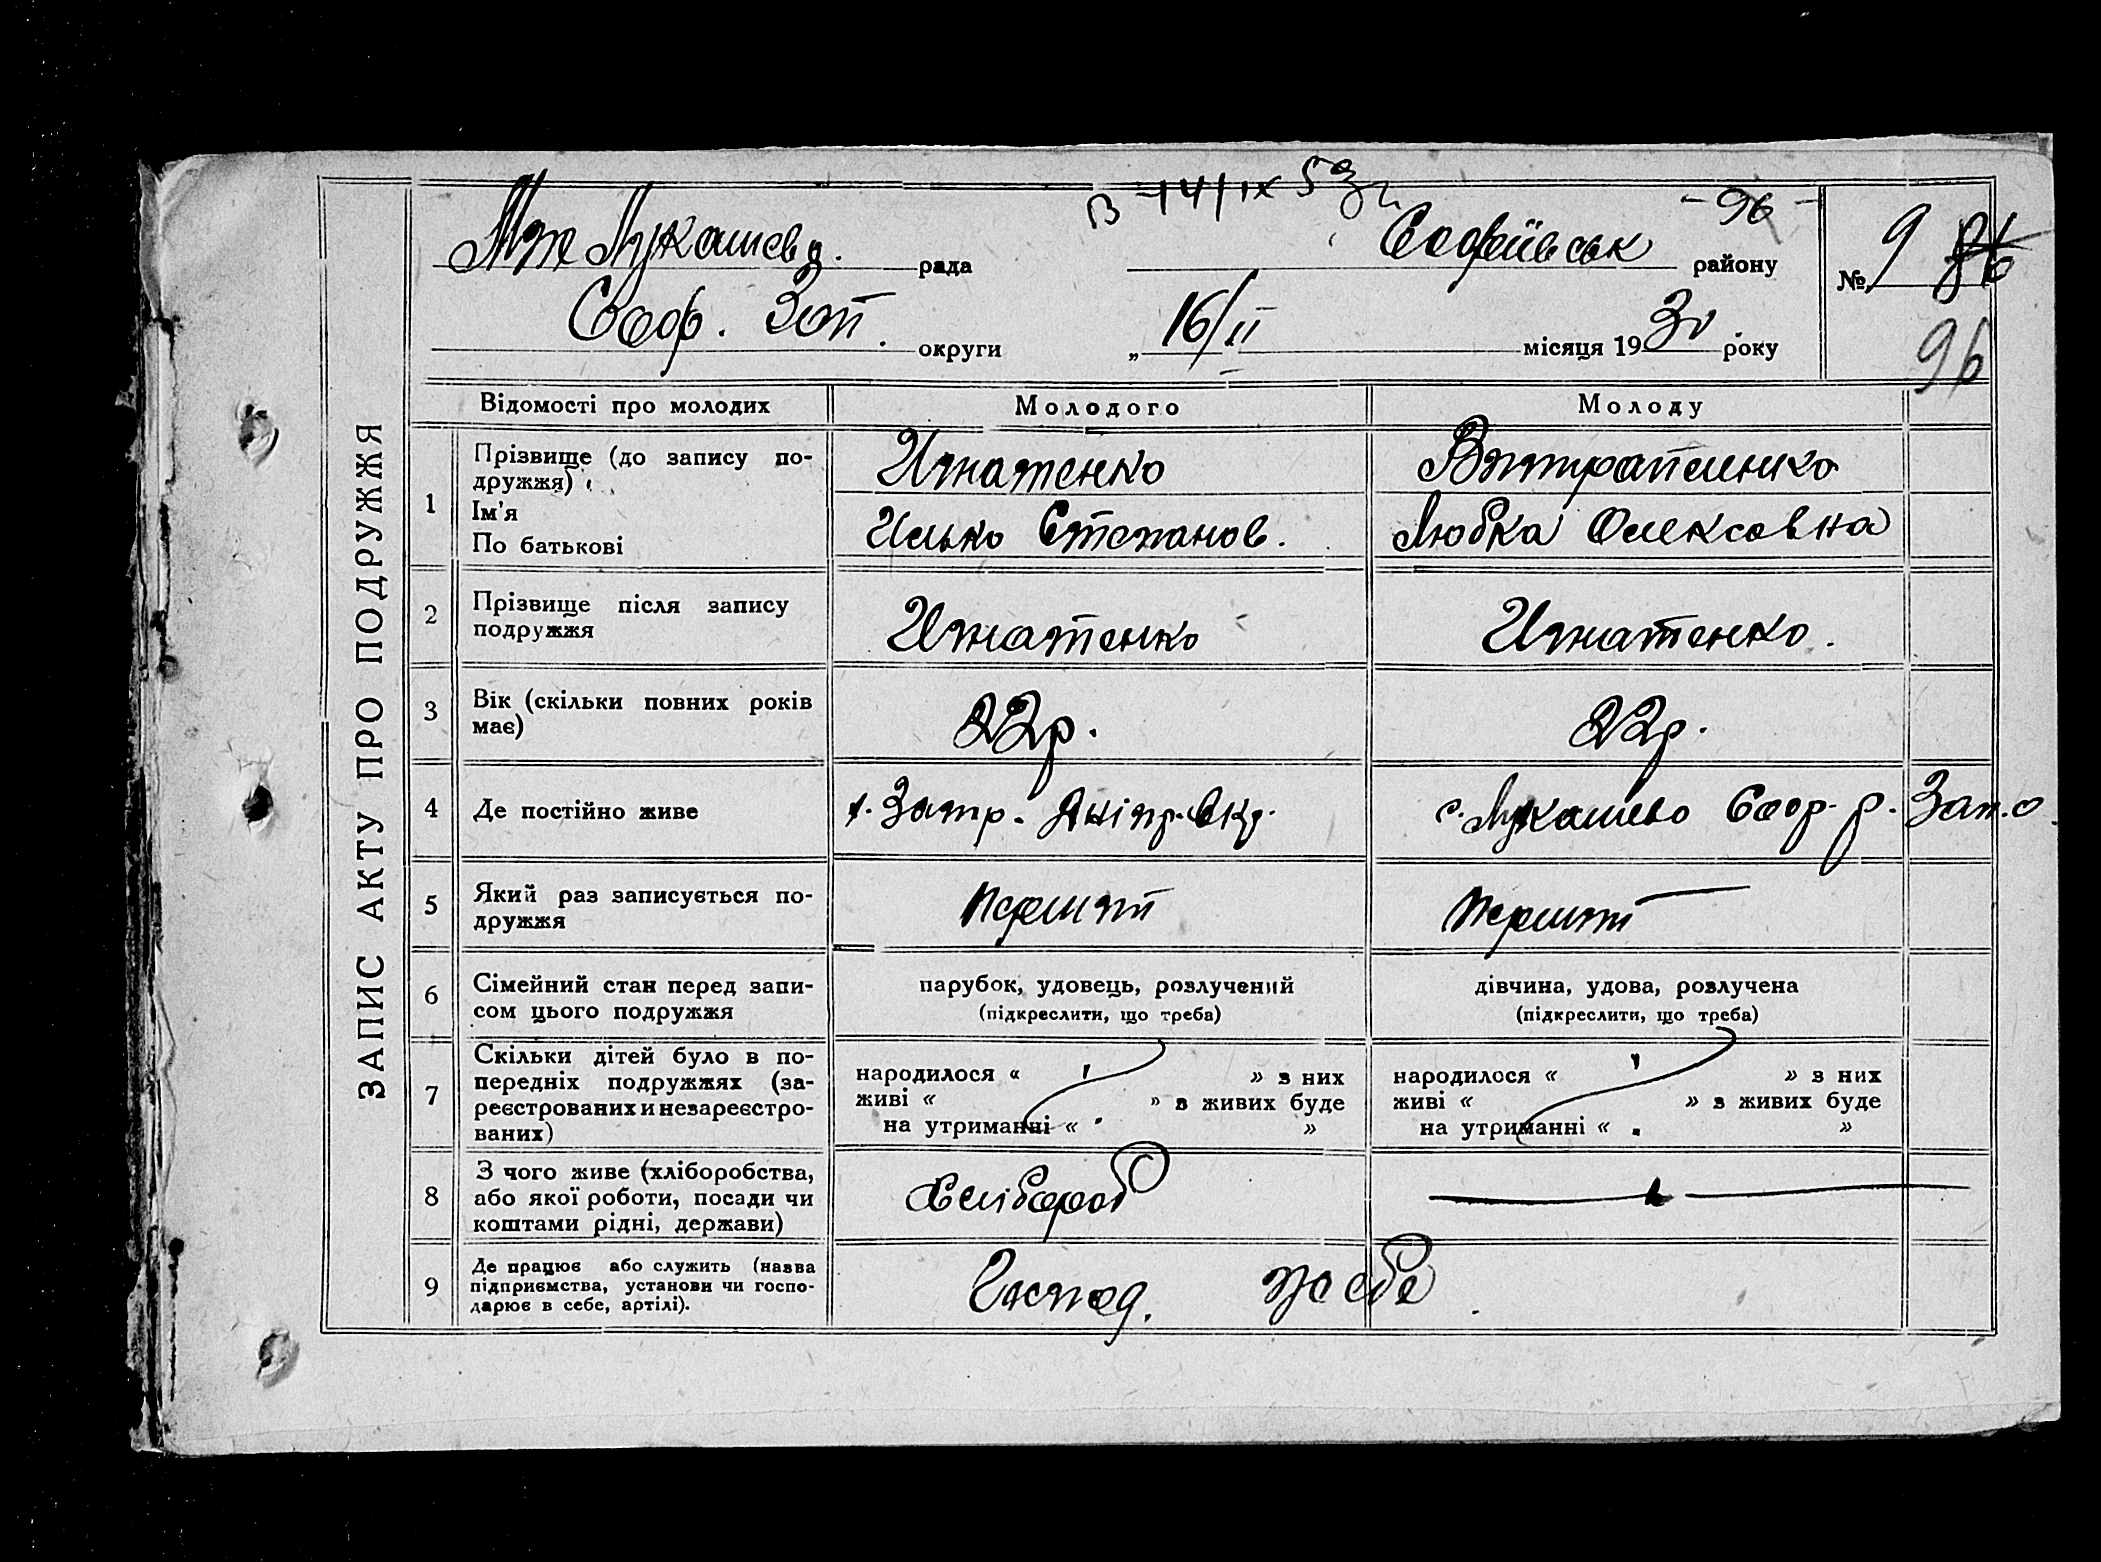 ЗАПИС АКТУ ПРО ПОДРУЖЖЯ
- 96 -
Лукашевс. рада Софеївськ району
№ 9
Соф. Зап. округи „ 16/II місяця 1930 року
96
Відомості про молодих Молодого Молоду
1 Прізвище (до запису по-
дружжя)
Ім'я
По батькові
Игнатенко
Илько Степанов.
Любка Олексовна
2 Прізвище після запису
подружжя
Игнатенко Игнатенко.
3 Вік (скільки повних років
має)
22р. 22р.
4 Де постійно живе
с. Лукашево Соф. р. Зап. о.
5 Який раз записується по-
дружжя
перший перший
6 Сімейний стан перед запи-
сом цього подружжя
парубок, удовець, розлучений
(підкреслити, що треба)
дівчина, удова, розлучена
(підкреслити, що треба)
7 Скільки дітей було в по-
передніх подружжях (за-
реєстрованих и незареєстро-
ваних)
народилося « » з них
живі « » з живих буде
на утриманні « »
народилося « » з них
живі « » з живих буде
на утриманні « »
8 З чого живе (хліборобства,
або якої роботи, посади чи
коштами рідні, держави)
Хлібороб
9 Де працює або служить (назва
підприємства, установи чи госпо-
дарює в себе, артілі).
Господ. у себе